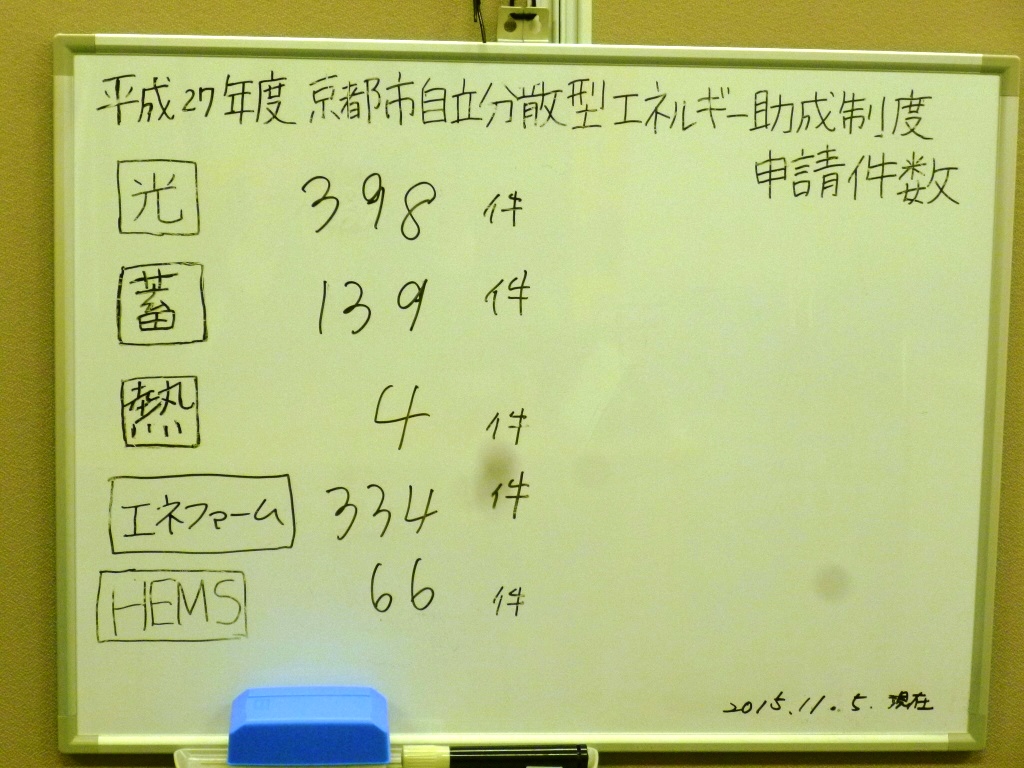 平成27年度 京都市自立分散型エネルギー助成制度
申請件数
光 398 件
蓄 139 件
熱 4 件
エネファーム 334 件
HEMS 66 件
2015.11.5.現在